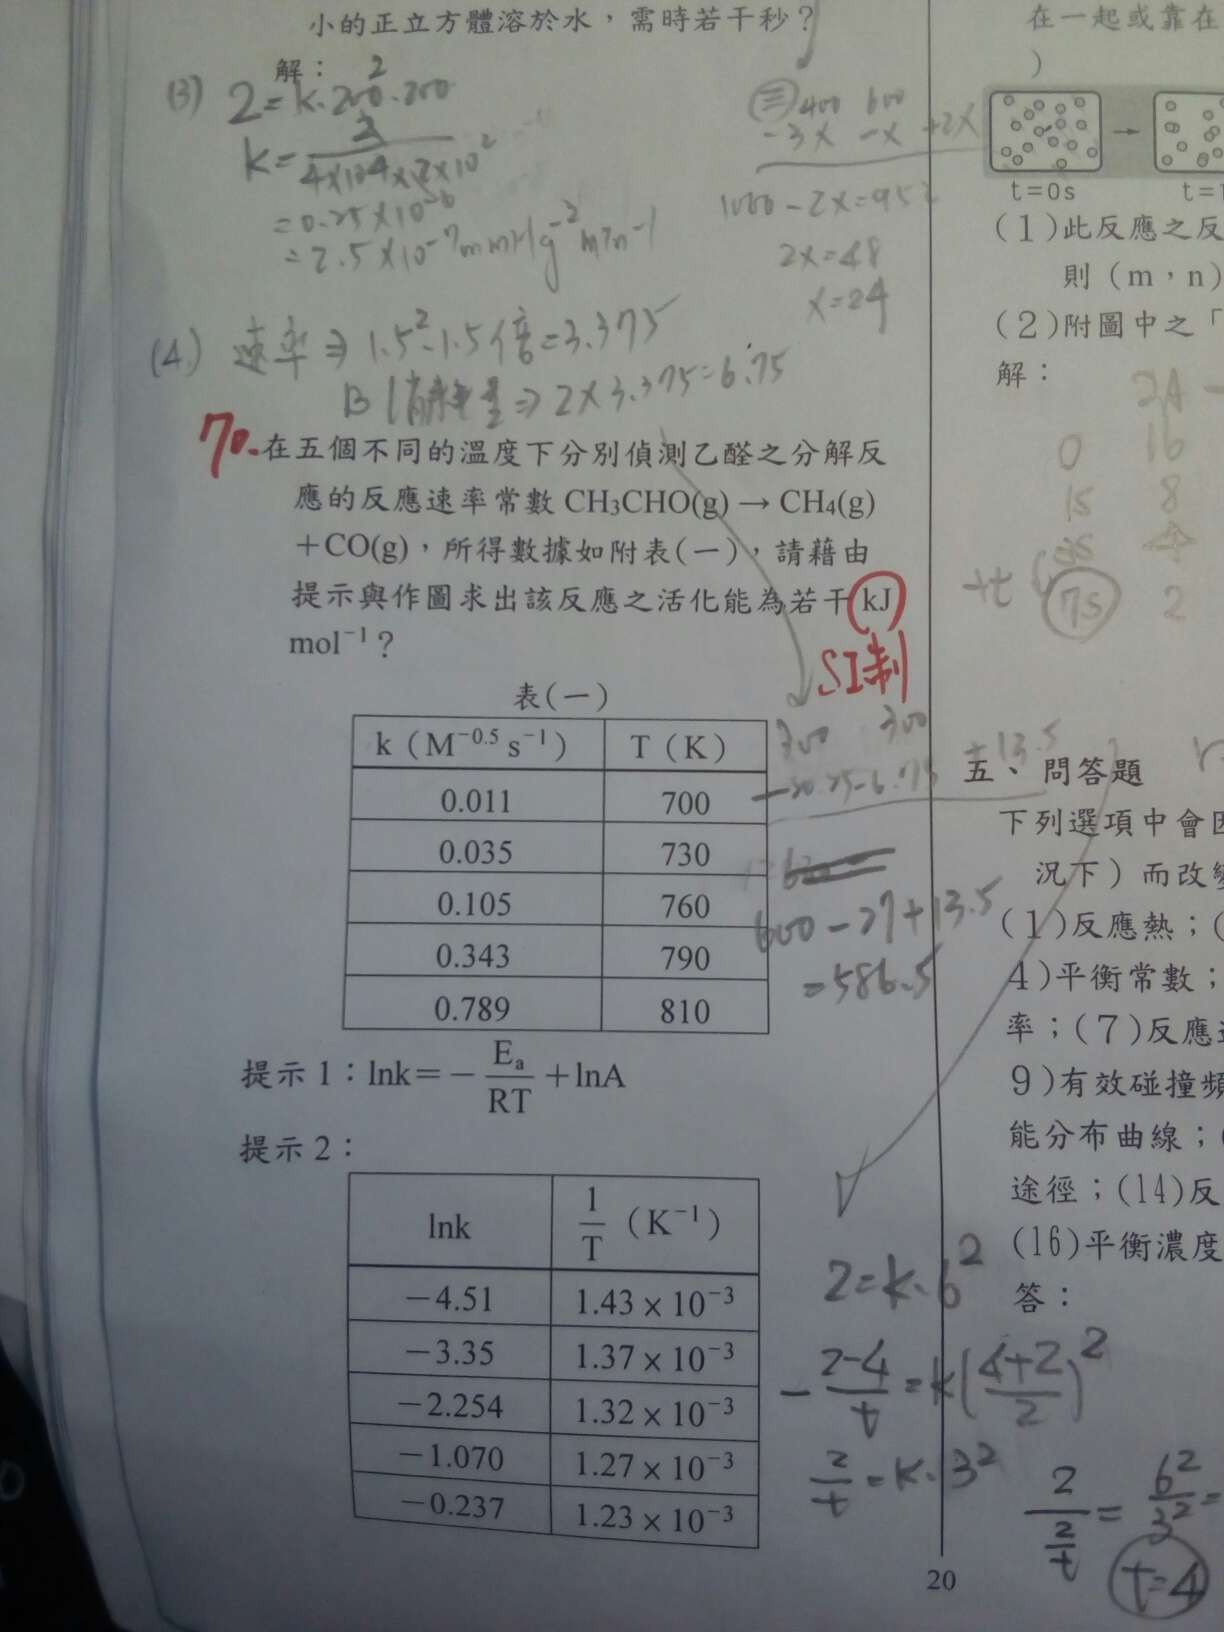 小的正立方體溶於水，需時若干秒？
解：
(3) 2=k·200²·200
k=
=2.5×10⁻⁷mmHg⁻²min⁻¹
(4) 速率⇒1.5²·1.5倍=3.375
B消耗量⇒2×3.375=6.75
㊂ 400 600
-3x -x +2x
1000-2x=952
2x=48
x=24
70.在五個不同的溫度下分別偵測乙醛之分解反
應的反應速率常數 CH₃CHO(g) → CH₄(g)
+CO(g)，所得數據如附表(一)，請藉由
提示與作圖求出該反應之活化能為若干 kJ
mol⁻¹？
SI制
表(一)
k（M⁻⁰·⁵ s⁻¹） T（K）
0.011 700
0.035 730
0.105 760
0.343 790
0.789 810
300 300
-20.25 -6.75 +13.5
600-27+13.5
=586.5
提示 1：lnk=-Eₐ/RT+lnA
提示 2：
lnk 1/T（K⁻¹）
-4.51 1.43×10⁻³
-3.35 1.37×10⁻³
-2.254 1.32×10⁻³
-1.070 1.27×10⁻³
-0.237 1.23×10⁻³
在一起或靠在
)
t=0s t=1
(1)此反應之反
則（m，n）
(2)附圖中之「
解：
2A
0 16
15 8
4
75 2
五、問答題
下列選項中會因
況下）而改變
(1)反應熱；(
4)平衡常數；
率；(7)反應速
9)有效碰撞頻
能分布曲線；(
途徑；(14)反
(16)平衡濃度
答：
2=k·6²
-(2-4)/t=k((4+2)/2)²
2/t=k·3²
2/(2/t)=6²/3²=
t=4
20